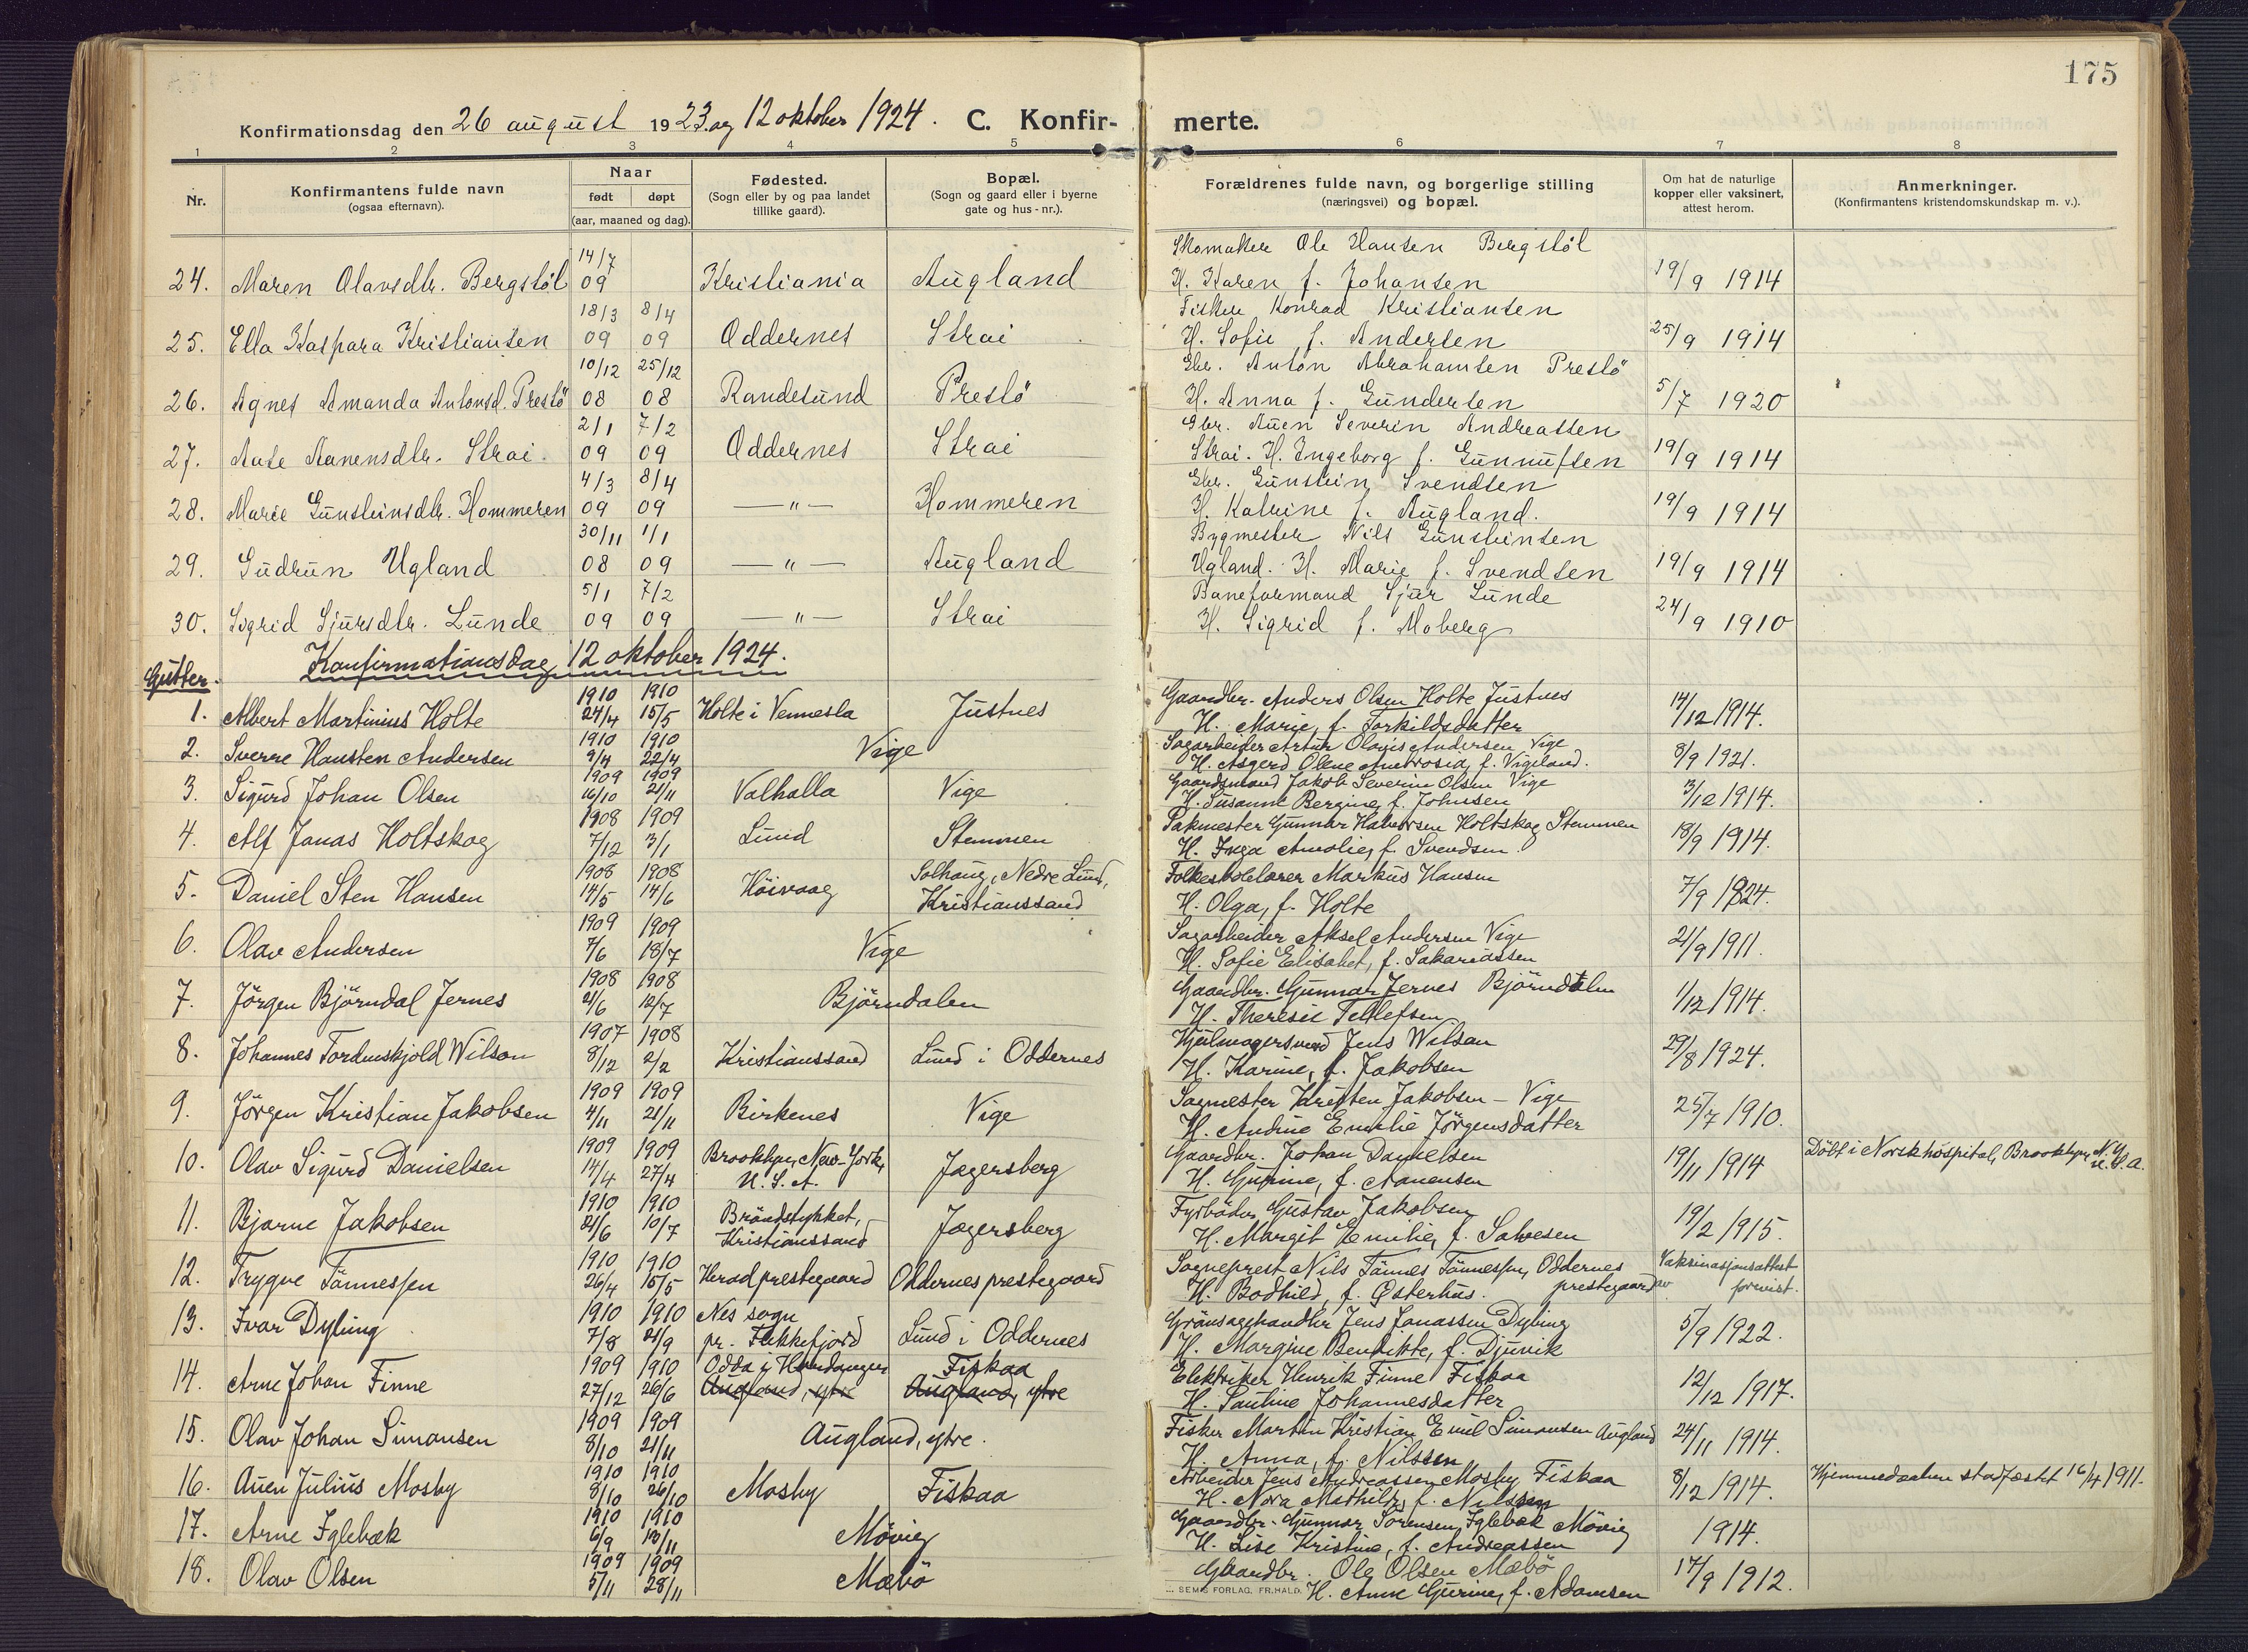 175
Konfirmationsdag den 26 august 1923. og 12 oktober 1924. C. Konfirmerte.
1 2 3 4 5 6 7 8
Nr. Konfirmantens fulde navn (ogsaa efternavn). Naar født døpt (aar, maaned og dag). Fødested. (Sogn eller by og paa landet tillike gaard). Bopæl. (Sogn og gaard eller i byerne gate og hus-nr.). Forældrenes fulde navn, og borgerlige stilling (næringsvei) og bopæl. Om hat de naturlige kopper eller vaksinert, attest herom. Anmerkninger. (Konfirmantens kristendomskundskap m. v.).
14/7 Skomaker Ole Hansen Bergstøl
24. Maren Olavsdtr. Bergstøl 09 Kristiania Augland H. Karen f. Johansen 19/9 1914
18/3 8/4 Fisker Konrad Kristiansen
25. Ella Kaspara Kristiansen 09 09 Oddernes Strai H. Sofie f. Andersen 25/9 1914
10/12 25/12 Gbr. Anton Abrahamsen Prestö
26. Agnes Amanda Antonsd. Prestö 08 08 Randesund Prestö H. Anna f. Gundersen 5/7 1920
2/1 7/2 Gbr. Auen Severin Andreassen
27. Aase Aanensdtr. Strai. 09 09 Oddernes Strai Strai. H. Ingeborg f. Gunnufsen 19/9 1914
4/3 8/4 Gbr. Gunstein Svendsen
28. Marie Gunsteinsdtr. Hommeren 09 09 — " — Hommeren H. Katrine f. Augland. 19/9 1914
30/11 1/1 Bygmester Nils Gunsteinsen
29. Gudrun Ugland 08 09 — " — Augland Ugland. H. Marie f. Svendsen 19/9 1914
5/1 7/2 Baneformand Sjur Lunde
30. Sigrid Sjursdtr. Lunde 09 09 — " — Strai H. Sigrid f. Moberg 24/9 1910
Gutter. Konfirmationsdag 12 oktober 1924.
1910 1910 Gaardbr. Anders Olsen Holte Justnes
1. Albert Martinius Holte 24/4 15/5 Holte i Vennesla Justnes H. Marie, f. Torkildsdatter 14/12 1914.
1910 1910 Sagarbeider Artur Olavis Andersen Vige
2. Sverre Hansten Andersen 9/4 22/4 Vige H. Asgerd Olene Ambrosia, f. Vigeland. 8/9 1921.
1909 1909 Gaardsmand Jakob Severin Olsen Vige
3. Sigurd Johan Olsen 16/10 21/11 Valhalla Vige H. Susanne Bergine, f. Johnsen 3/12 1914.
1908 1909 Pakmester Gunnar Halvorsen Holtskog Stemmen
4. Alf Jonas Holtskog 7/12 3/1 Lund Stemmen H. Inga Amalie, f. Svendsen 18/9 1914.
1908 1908 Solhaug, Nedre Lund, Folkeskolelærer Markus Hansen
5. Daniel Sten Hansen 14/5 14/6 Höivaag Kristianssand H. Olga, f. Holte 7/9 1924.
1909 1909 Sagarbeider Aksel Andersen Vige
6. Olav Andersen 7/6 18/7 Vige H. Sofie Elisabet, f. Sakariassen 21/9 1911.
1908 1908 Gaardbr. Gunnar Jernes Björndalen
7. Jörgen Björndal Jernes 21/6 12/7 Björndalen H. Theresie Tellefsen 1/12 1914.
1907 1908 Hjulmagersvend Jens Wilson
8. Johannes Tordenskjold Wilson 8/12 2/2 Kristianssand Lund i Oddernes H. Karine, f. Jakobsen 29/8 1924.
1909 1909 Sagmester Kristen Jakobsen - Vige
9. Jörgen Kristian Jakobsen 4/11 21/11 Birkenes Vige H. Andine Emelie Jörgensdatter 25/7 1910.
1909 1909 Brooklyn, New-York, Gaardbr. Johan Danielsen
10. Olav Sigurd Danielsen 14/4 27/4 U. S. A. Jegersberg H. Gurine, f. Aanensen 19/11 1914 Döbt i Norsk hospital, Brooklyn, N.Y. U.S.A.
1910 1910 Bröndstykket, Fyrböder Gustav Jakobsen
11. Bjarne Jakobsen 21/6 10/7 Kristianssand Jegersberg H. Margit Emilie, f. Salvesen 19/2 1915.
1910 1910 Sogneprest Nils Tönnes Tönnessen, Oddernes prestegaard Vaksinasjonsattest
12. Trygve Tönnessen 26/4 15/5 Herad prestegaard Oddernes prestegaard H. Bodhild, f. Østerhus. forevist.
1910 1910 Nes sogn Grönsagshandler Jens Jonassen Dybing
13. Ivar Dybing 7/8 21/9 pr. Flekkefjord Lund i Oddernes H. Margine Bendikte, f. Djuvik 5/9 1922.
1909 1910 Odda i Hardanger Fiskaa Elektriker Henrik Finne Fiskaa
14. Arne Johan Finne 27/12 26/6 Augland, ytre Augland, ytre H. Pauline Johannesdatter 12/12 1917.
1909 1909 Fisker Martin Kristian Emil Simonsen Augland
15. Olav Johan Simonsen 8/10 21/11 Augland, ytre. H. Anna, f. Nilssen 24/11 1914.
1910 1910 Arbeider Jens Andreassen Mosby Fiskaa
16. Auen Julius Mosby 8/10 26/10 Mosby Fiskaa H. Nora Mathilde, f. Nilssen 8/12 1914. Hjemmedaaben stadfæstet 16/4 1911.
1910 1910 Gaardbr. Gunnar Sörensen Iglebæk Mövig
17. Arne Iglebæk 6/9 13/11 Mövig H. Lise Kristine, f. Andreassen 1914.
1909 1909 Gaardbr. Ole Olsen Mæbö
18. Olav Olsen 5/11 28/11 Mæbö H. Anne Gurine, f. Adamsen 17/9 1912.
SEMS FORLAG, FR.HALD.